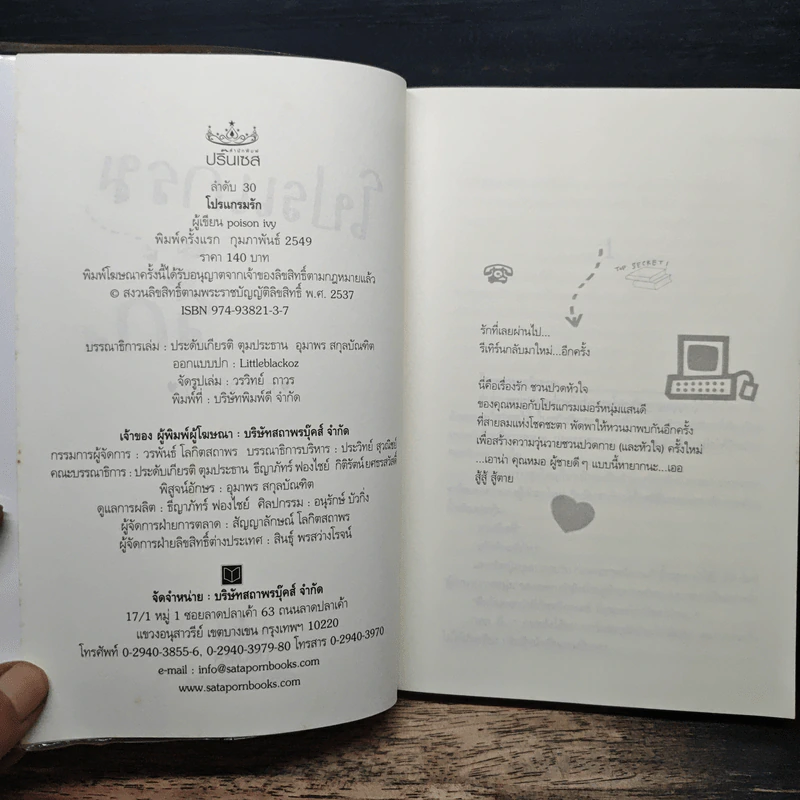 สำนักพิมพ์
ปริ๊นเซส
ลำดับ 30
โปรแกรมรัก
ผู้เขียน poison ivy
พิมพ์ครั้งแรก กุมภาพันธ์ 2549
ราคา 140 บาท
พิมพ์โฆษณาครั้งนี้ได้รับอนุญาตจากเจ้าของลิขสิทธิ์ตามกฎหมายแล้ว
© สงวนลิขสิทธิ์ตามพระราชบัญญัติลิขสิทธิ์ พ.ศ. 2537
ISBN 974-93821-3-7
บรรณาธิการเล่ม : ประดับเกียรติ ตุมประธาน อุมาพร สกุลบัณฑิต
ออกแบบปก : Littleblackoz
จัดรูปเล่ม : วรวิทย์ ถาวร
พิมพ์ที่ : บริษัทพิมพ์ดี จำกัด
เจ้าของ ผู้พิมพ์ผู้โฆษณา : บริษัทสถาพรบุ๊คส์ จำกัด
กรรมการผู้จัดการ : วรพันธ์ โลกิตสถาพร บรรณาธิการบริหาร : ประวิทย์ สุวณิชย์
คณะบรรณาธิการ : ประดับเกียรติ ตุมประธาน ธีญาภัทร์ ฟองไชย์ กิติรัตน์ ยศธรสวัสดิ์
พิสูจน์อักษร : อุมาพร สกุลบัณฑิต
ดูแลการผลิต : ธีญาภัทร์ ฟองไชย์ ศิลปกรรม : อนุรักษ์ บัวกิ่ง
ผู้จัดการฝ่ายการตลาด : สัญญาลักษณ์ โลกิตสถาพร
ผู้จัดการฝ่ายลิขสิทธิ์ต่างประเทศ : สินธุ์ พรสว่างโรจน์
จัดจำหน่าย : บริษัทสถาพรบุ๊คส์ จำกัด
17/1 หมู่ 1 ซอยลาดปลาเค้า 63 ถนนลาดปลาเค้า
แขวงอนุสาวรีย์ เขตบางเขน กรุงเทพฯ 10220
โทรศัพท์ 0-2940-3855-6, 0-2940-3979-80 โทรสาร 0-2940-3970
e-mail : info@satapornbooks.com
www.satapornbooks.com
TOP SECRET!
รักที่เลยผ่านไป...
รีเทิร์นกลับมาใหม่...อีกครั้ง
นี่คือเรื่องรัก ชวนปวดหัวใจ
ของคุณหมอกับโปรแกรมเมอร์หนุ่มแสนดี
ที่สายลมแห่งโชคชะตา พัดพาให้หวนมาพบกันอีกครั้ง
เพื่อสร้างความวุ่นวายชวนปวดกาย (และหัวใจ) ครั้งใหม่
...เอาน่า คุณหมอ ผู้ชายดีๆ แบบนี้หายากนะ...เออ
สู้สู้ สู้ตาย